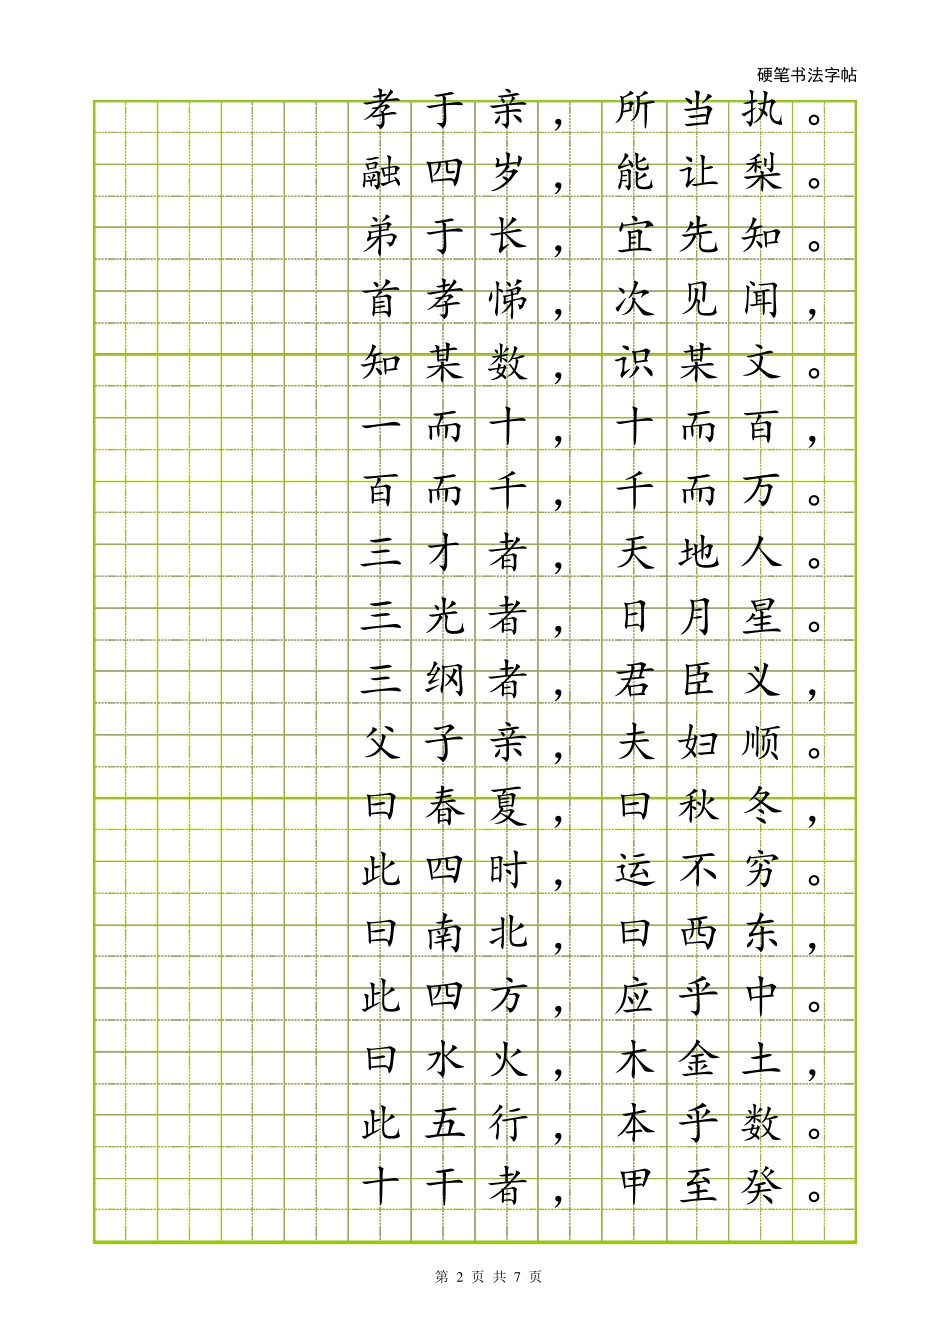 硬笔书法字帖
孝于亲，所当执。
融四岁，能让梨。
弟于长，宜先知。
首孝悌，次见闻，
知某数，识某文。
一而十，十而百，
百而千，千而万。
三才者，天地人。
三光者，日月星。
三纲者，君臣义，
父子亲，夫妇顺。
曰春夏，曰秋冬，
此四时，运不穷。
曰南北，曰西东，
此四方，应乎中。
曰水火，木金土，
此五行，本乎数。
十干者，甲至癸。
第 2 页 共 7 页